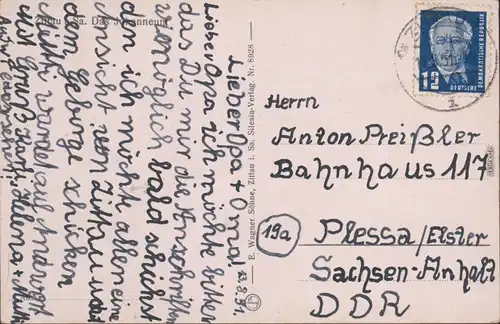 Zittau i. Sa. Das Johanneum
23.8.51.
Lieber Opa + Oma!
Lieber Opa ich möchte bitten
das Du mir die Anschriften
womöglich bald schickst
den ich möchte allen eine
Ansicht von Zittau und
dem Gebirge schicken
Bitte
Mit Gruß Karl, Helena +
E. Wagner Söhne, Zittau i. Sa. Silesia-Verlag, Nr. 8928
12
DEUTSCHE
DEMOKRATISCHE REPUBLIK
Herrn
Anton Preißler
Bahnhaus 117
19a
Plessa/Elster
Sachsen-Anhalt
DDR